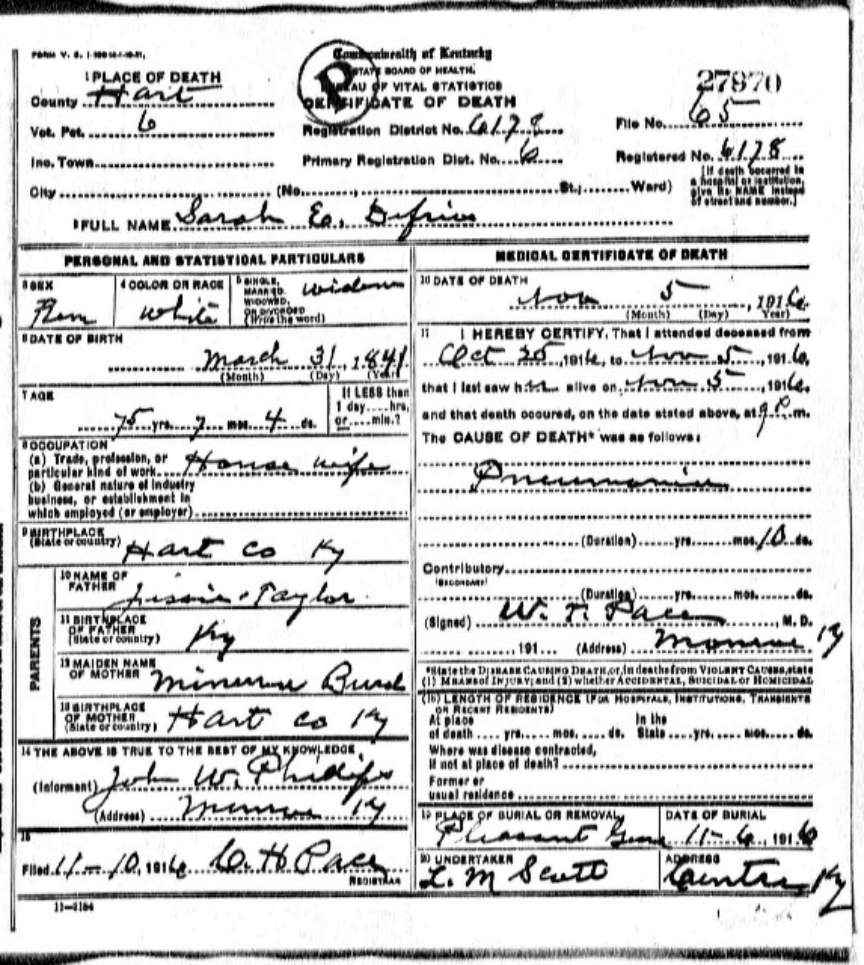 Commonwealth of Kentucky
STATE BOARD OF HEALTH.
BUREAU OF VITAL STATISTICS
CERTIFICATE OF DEATH
1 PLACE OF DEATH
County Hart
Vot. Pct. 6
Inc. Town
City (No. St.; Ward)
Registration District No. 6178
Primary Registration Dist. No. 6
27870
File No. 65
Registered No. 6178
[If death occurred in a hospital or institution, give its NAME instead of street and number.]
2 FULL NAME Sarah E.
PERSONAL AND STATISTICAL PARTICULARS
3 SEX
Fem
4 COLOR OR RACE
White
5 SINGLE, MARRIED, WIDOWED, OR DIVORCED (Write the word)
widow
6 DATE OF BIRTH
March 31, 1841
(Month) (Day) (Year)
7 AGE
75 yrs. 7 mos. 4 ds.
If LESS than 1 day.....hrs. or.....min.?
8 OCCUPATION
(a) Trade, profession, or particular kind of work House wife
(b) General nature of industry
business, or establishment in
which employed (or employer)
9 BIRTHPLACE
(State or country) Hart Co Ky
PARENTS
10 NAME OF FATHER Taylor
11 BIRTHPLACE OF FATHER (State or country) Ky
12 MAIDEN NAME OF MOTHER
13 BIRTHPLACE OF MOTHER (State or country) Hart Co Ky
14 THE ABOVE IS TRUE TO THE BEST OF MY KNOWLEDGE
(Informant) John W. Phillips
(Address) Monroe Ky
15
Filed 11-10, 1916 C. H Pace
REGISTRAR
11-2184
MEDICAL CERTIFICATE OF DEATH
16 DATE OF DEATH
Nov 5, 1916
(Month) (Day) (Year)
17 I HEREBY CERTIFY, That I attended deceased from
Oct 25, 1916, to Nov 5, 1916,
that I last saw her alive on Nov 5, 1916,
and that death occured, on the date stated above, at 9 P.m.
The CAUSE OF DEATH* was as follows:
Pneumonia
(Duration) yrs. mos. 10 ds.
Contributory
(SECONDARY)
(Duration) yrs. mos. ds.
(Signed) W. T. Pace M. D.
, 191 (Address) Monroe Ky
*State the DISEASE CAUSING DEATH, or, in deaths from VIOLENT CAUSES, state
(1) MEANS OF INJURY; and (2) whether ACCIDENTAL, SUICIDAL or HOMICIDAL
(18) LENGTH OF RESIDENCE (FOR HOSPITALS, INSTITUTIONS, TRANSIENTS
OR RECENT RESIDENTS)
At place of death yrs. mos. ds. In the State yrs. mos. ds.
Where was disease contracted,
if not at place of death?
Former or
usual residence
19 PLACE OF BURIAL OR REMOVAL
Pleasant
DATE OF BURIAL
11-6, 1916
20 UNDERTAKER
L. M Scott
ADDRESS
Center Ky